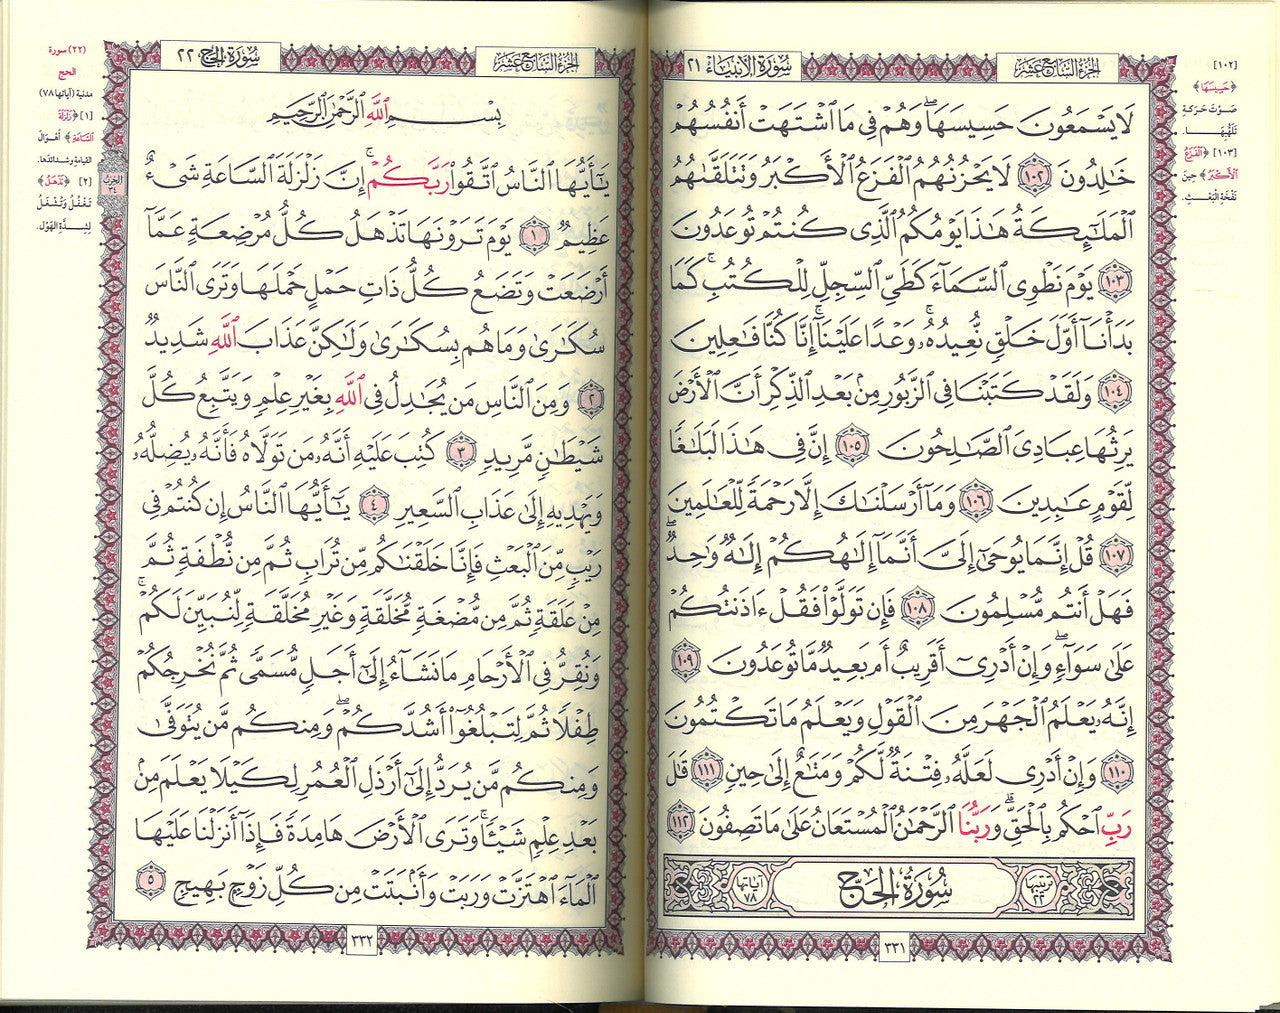 الجزء السابع عشر
سورة الأنبياء ٢١
لَا يَسْمَعُونَ حَسِيسَهَا ۖ وَهُمْ فِي مَا اشْتَهَتْ أَنفُسُهُمْ
خَالِدُونَ ١٠٢ لَا يَحْزُنُهُمُ الْفَزَعُ الْأَكْبَرُ وَتَتَلَقَّاهُمُ
الْمَلَائِكَةُ هَٰذَا يَوْمُكُمُ الَّذِي كُنتُمْ تُوعَدُونَ
١٠٣ يَوْمَ نَطْوِي السَّمَاءَ كَطَيِّ السِّجِلِّ لِلْكُتُبِ ۚ كَمَا
بَدَأْنَا أَوَّلَ خَلْقٍ نُّعِيدُهُ ۚ وَعْدًا عَلَيْنَا ۚ إِنَّا كُنَّا فَاعِلِينَ
١٠٤ وَلَقَدْ كَتَبْنَا فِي الزَّبُورِ مِن بَعْدِ الذِّكْرِ أَنَّ الْأَرْضَ
يَرِثُهَا عِبَادِيَ الصَّالِحُونَ ١٠٥ إِنَّ فِي هَٰذَا لَبَلَاغًا
لِّقَوْمٍ عَابِدِينَ ١٠٦ وَمَا أَرْسَلْنَاكَ إِلَّا رَحْمَةً لِّلْعَالَمِينَ
١٠٧ قُلْ إِنَّمَا يُوحَىٰ إِلَيَّ أَنَّمَا إِلَٰهُكُمْ إِلَٰهٌ وَاحِدٌ ۖ
فَهَلْ أَنتُم مُّسْلِمُونَ ١٠٨ فَإِن تَوَلَّوْا فَقُلْ ءَاذَنتُكُمْ
عَلَىٰ سَوَاءٍ ۖ وَإِنْ أَدْرِي أَقَرِيبٌ أَم بَعِيدٌ مَّا تُوعَدُونَ ١٠٩
إِنَّهُ يَعْلَمُ الْجَهْرَ مِنَ الْقَوْلِ وَيَعْلَمُ مَا تَكْتُمُونَ
١١٠ وَإِنْ أَدْرِي لَعَلَّهُ فِتْنَةٌ لَّكُمْ وَمَتَاعٌ إِلَىٰ حِينٍ ١١١ قَٰلَ
رَبِّ احْكُم بِالْحَقِّ ۗ وَرَبُّنَا الرَّحْمَٰنُ الْمُسْتَعَانُ عَلَىٰ مَا تَصِفُونَ ١١٢
ترتيبها ٢٢ سُورَةُ الحَجّ آياتها ٧٨
٣٣١
[١٠٢]
﴿حَسِيسَهَا﴾
صَوْتَ حَرَكَةِ
تَلَهُّبِهَا.
[١٠٣] ﴿الْفَزَعُ
الْأَكْبَرُ﴾ حِينَ
نَفْخَةِ الْبَعْثِ.
الجزء السابع عشر
سورة الحج ٢٢
بِسْمِ اللَّهِ الرَّحْمَٰنِ الرَّحِيمِ
يَا أَيُّهَا النَّاسُ اتَّقُوا رَبَّكُمْ ۚ إِنَّ زَلْزَلَةَ السَّاعَةِ شَيْءٌ
عَظِيمٌ ١ يَوْمَ تَرَوْنَهَا تَذْهَلُ كُلُّ مُرْضِعَةٍ عَمَّا
أَرْضَعَتْ وَتَضَعُ كُلُّ ذَاتِ حَمْلٍ حَمْلَهَا وَتَرَى النَّاسَ
سُكَارَىٰ وَمَا هُم بِسُكَارَىٰ وَلَٰكِنَّ عَذَابَ اللَّهِ شَدِيدٌ
٢ وَمِنَ النَّاسِ مَن يُجَادِلُ فِي اللَّهِ بِغَيْرِ عِلْمٍ وَيَتَّبِعُ كُلَّ
شَيْطَانٍ مَّرِيدٍ ٣ كُتِبَ عَلَيْهِ أَنَّهُ مَن تَوَلَّاهُ فَأَنَّهُ يُضِلُّهُ
وَيَهْدِيهِ إِلَىٰ عَذَابِ السَّعِيرِ ٤ يَا أَيُّهَا النَّاسُ إِن كُنتُمْ فِي
رَيْبٍ مِّنَ الْبَعْثِ فَإِنَّا خَلَقْنَاكُم مِّن تُرَابٍ ثُمَّ مِن نُّطْفَةٍ ثُمَّ
مِنْ عَلَقَةٍ ثُمَّ مِن مُّضْغَةٍ مُّخَلَّقَةٍ وَغَيْرِ مُخَلَّقَةٍ لِّنُبَيِّنَ لَكُمْ ۚ
وَنُقِرُّ فِي الْأَرْحَامِ مَا نَشَاءُ إِلَىٰ أَجَلٍ مُّسَمًّى ثُمَّ نُخْرِجُكُمْ
طِفْلًا ثُمَّ لِتَبْلُغُوا أَشُدَّكُمْ ۖ وَمِنكُم مَّن يُتَوَفَّىٰ
وَمِنكُم مَّن يُرَدُّ إِلَىٰ أَرْذَلِ الْعُمُرِ لِكَيْلَا يَعْلَمَ مِن
بَعْدِ عِلْمٍ شَيْئًا ۚ وَتَرَى الْأَرْضَ هَامِدَةً فَإِذَا أَنزَلْنَا عَلَيْهَا
الْمَاءَ اهْتَزَّتْ وَرَبَتْ وَأَنبَتَتْ مِن كُلِّ زَوْجٍ بَهِيجٍ ٥
٣٣٢
(٢٢) سورة
الحج
مدنية (آياتها ٧٨)
[١] ﴿زَلْزَلَةَ
السَّاعَةِ﴾ أهْوَالَ
القيامةِ وشدائدَها.
[٢] ﴿تَذْهَلُ﴾
تَغْفُلُ وَتُشْغَلُ
لِشِدَّةِ الهَوْل.
الحزب
٣٤